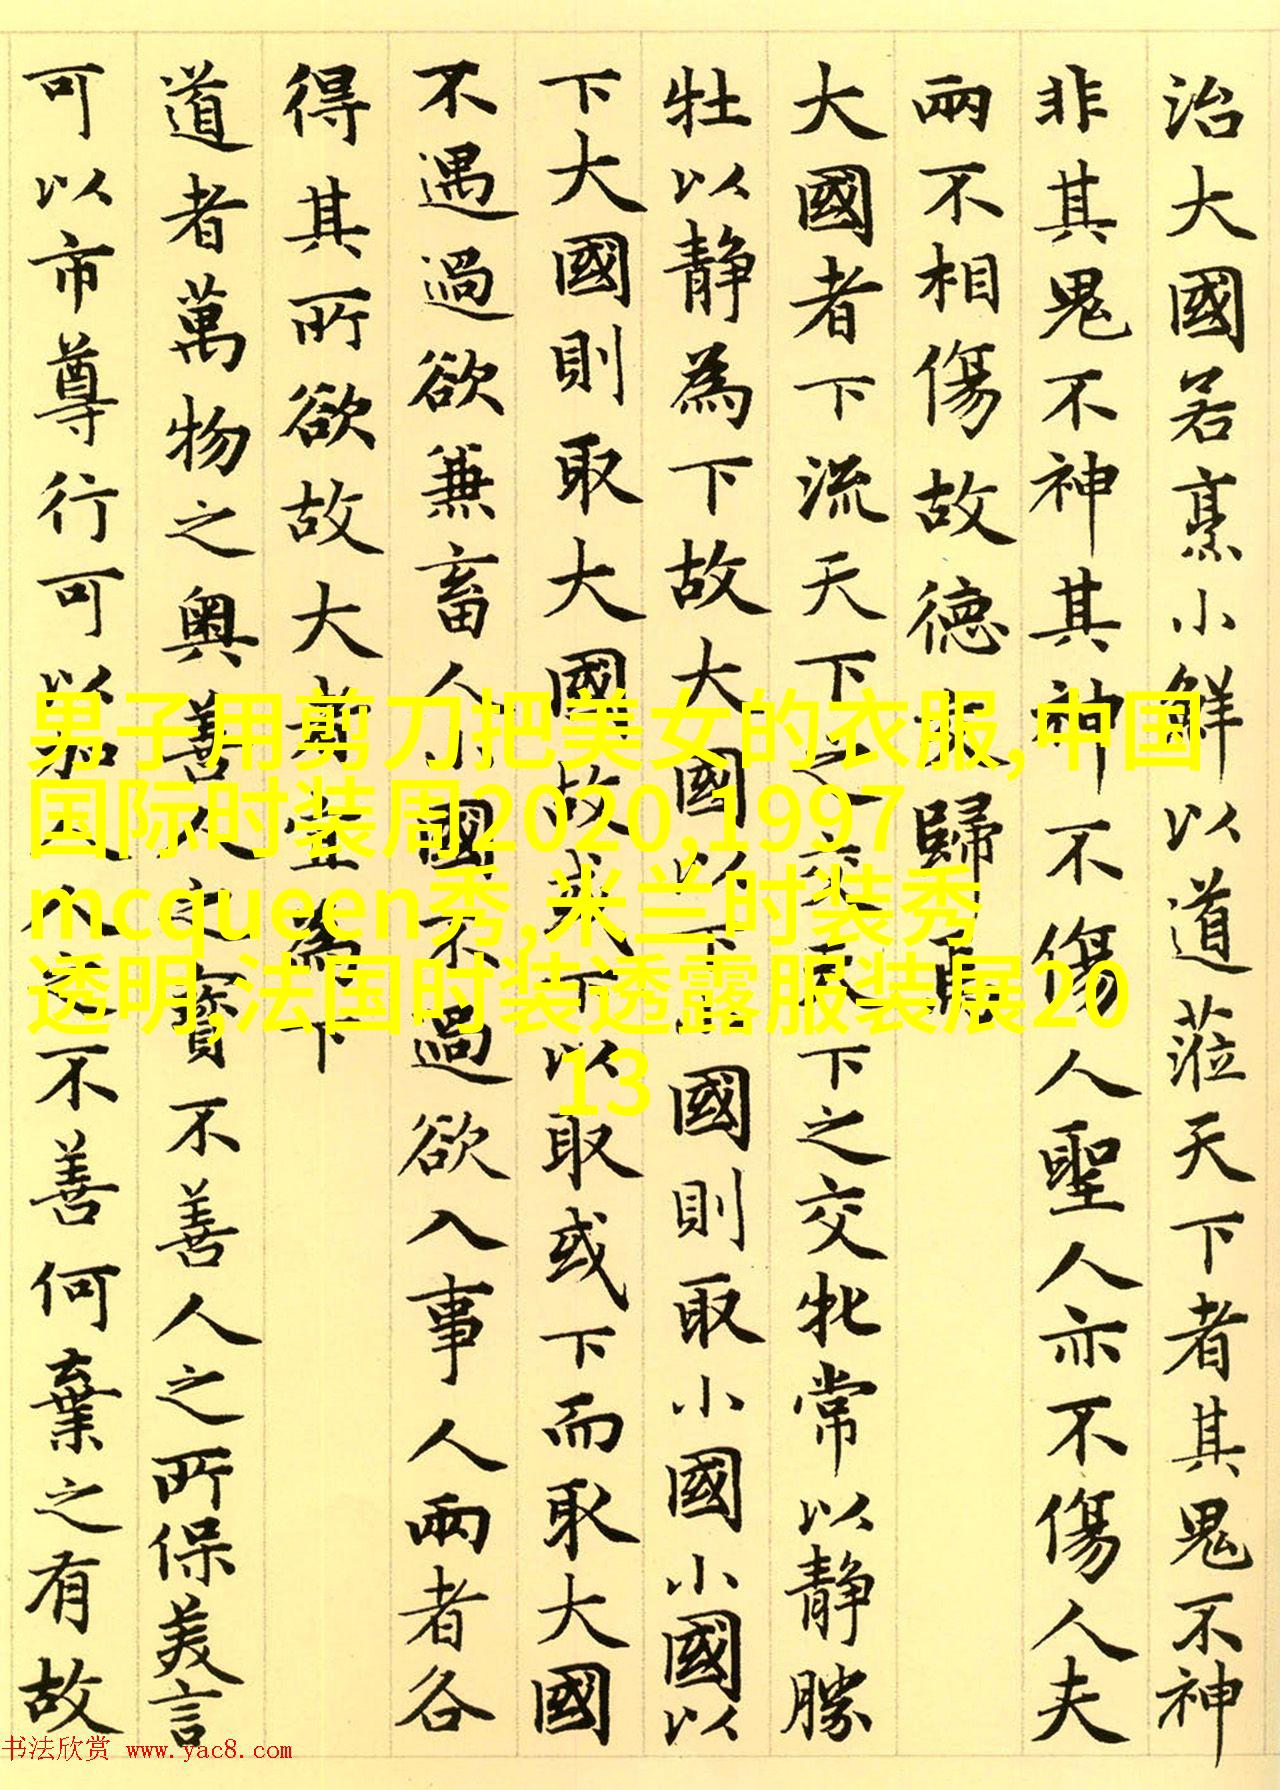 治大國若烹小鮮以道蒞天下者其鬼不神
非其鬼不神其神不傷人聖人亦不傷人夫
兩不相傷故德交歸焉
大國者下流天下之交天下之交牝常以静勝
牡以静為下故大國以下小國則取小國小國以
下大國則取大國故或下以取或下而取大國
不遇過欲兼畜人小國不過欲入事人兩者各
得其所欲故大者宜為下
道者萬物之奥善人之寳不善人之所保美言
可以市尊行可以加人人之不善何棄之有故
男子用剪刀把美女的衣服,中国
国际时装周2020,1997
mcqueen秀,米兰时装秀
透明,法国时装透露服装展20
13
书法欣赏 www.yac8.com